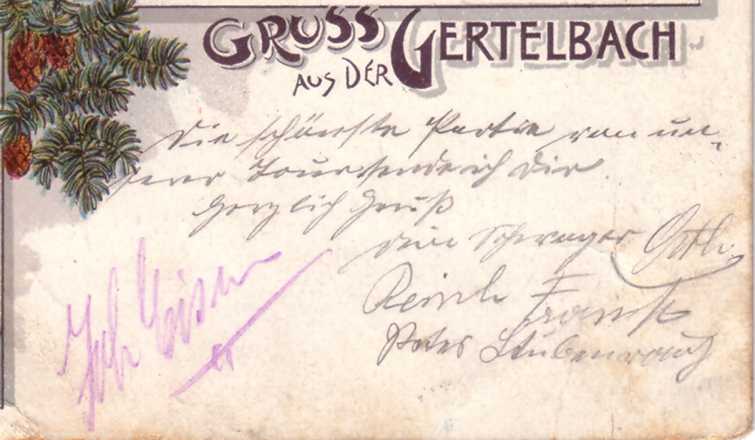 GRUSS
AUS DER GERTELBACH
Die schönste Partie von un-
serer Tour sende ich Dir.
Herzlich Gruß
dein Schwager
Franck
Stubenrauch